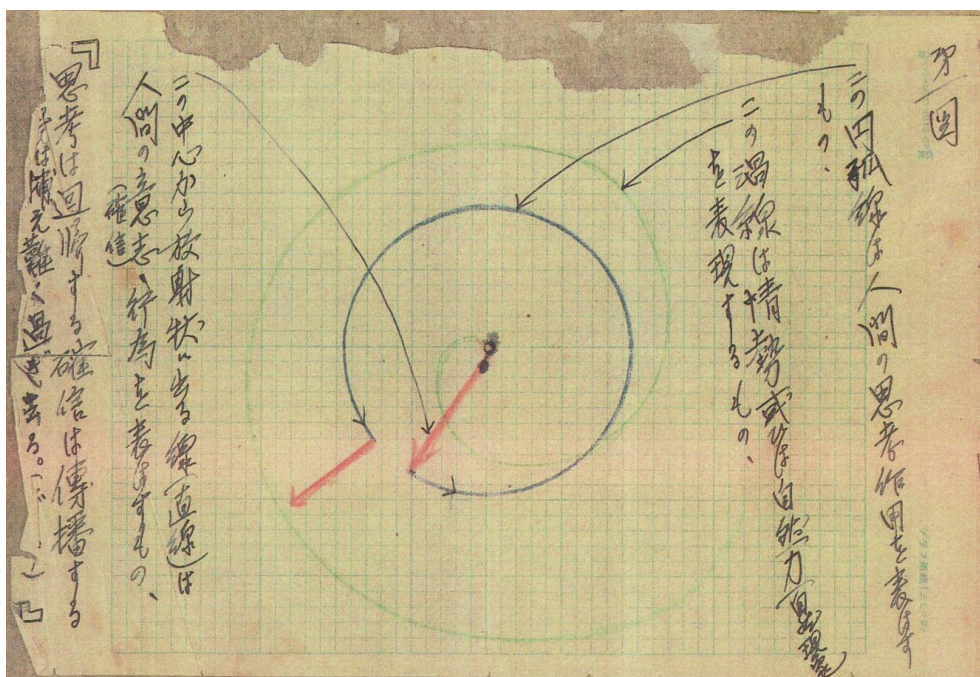 第一図
この円弧線は人間の思考作用を表はす
もの、
この渦線は情勢或ひは自然力
を表現するもの、
この中心から放射状に出る線(直線)は
人間の意志、行為を表はすもの、
(確信)
『思考は回帰する確信は傳播する
は捕え難く過ぎ去る。』